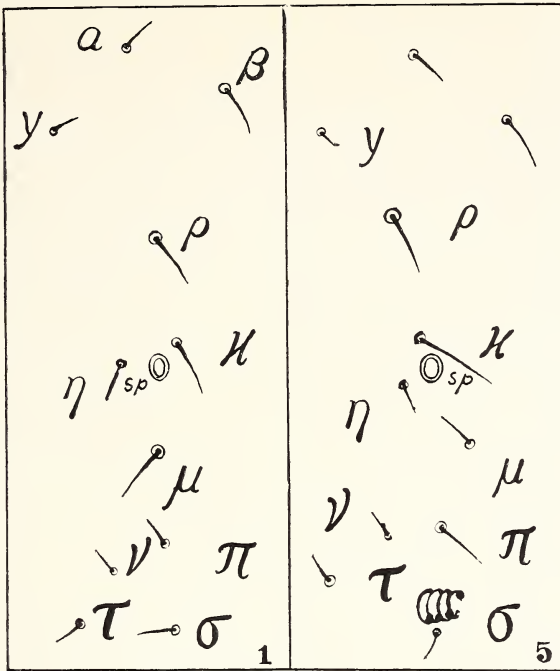 α
β
γ
ρ
ϰ
η sp
μ
ν
π
τ σ
1
γ
ρ
ϰ
sp
η
μ
ν
π
τ
σ
5